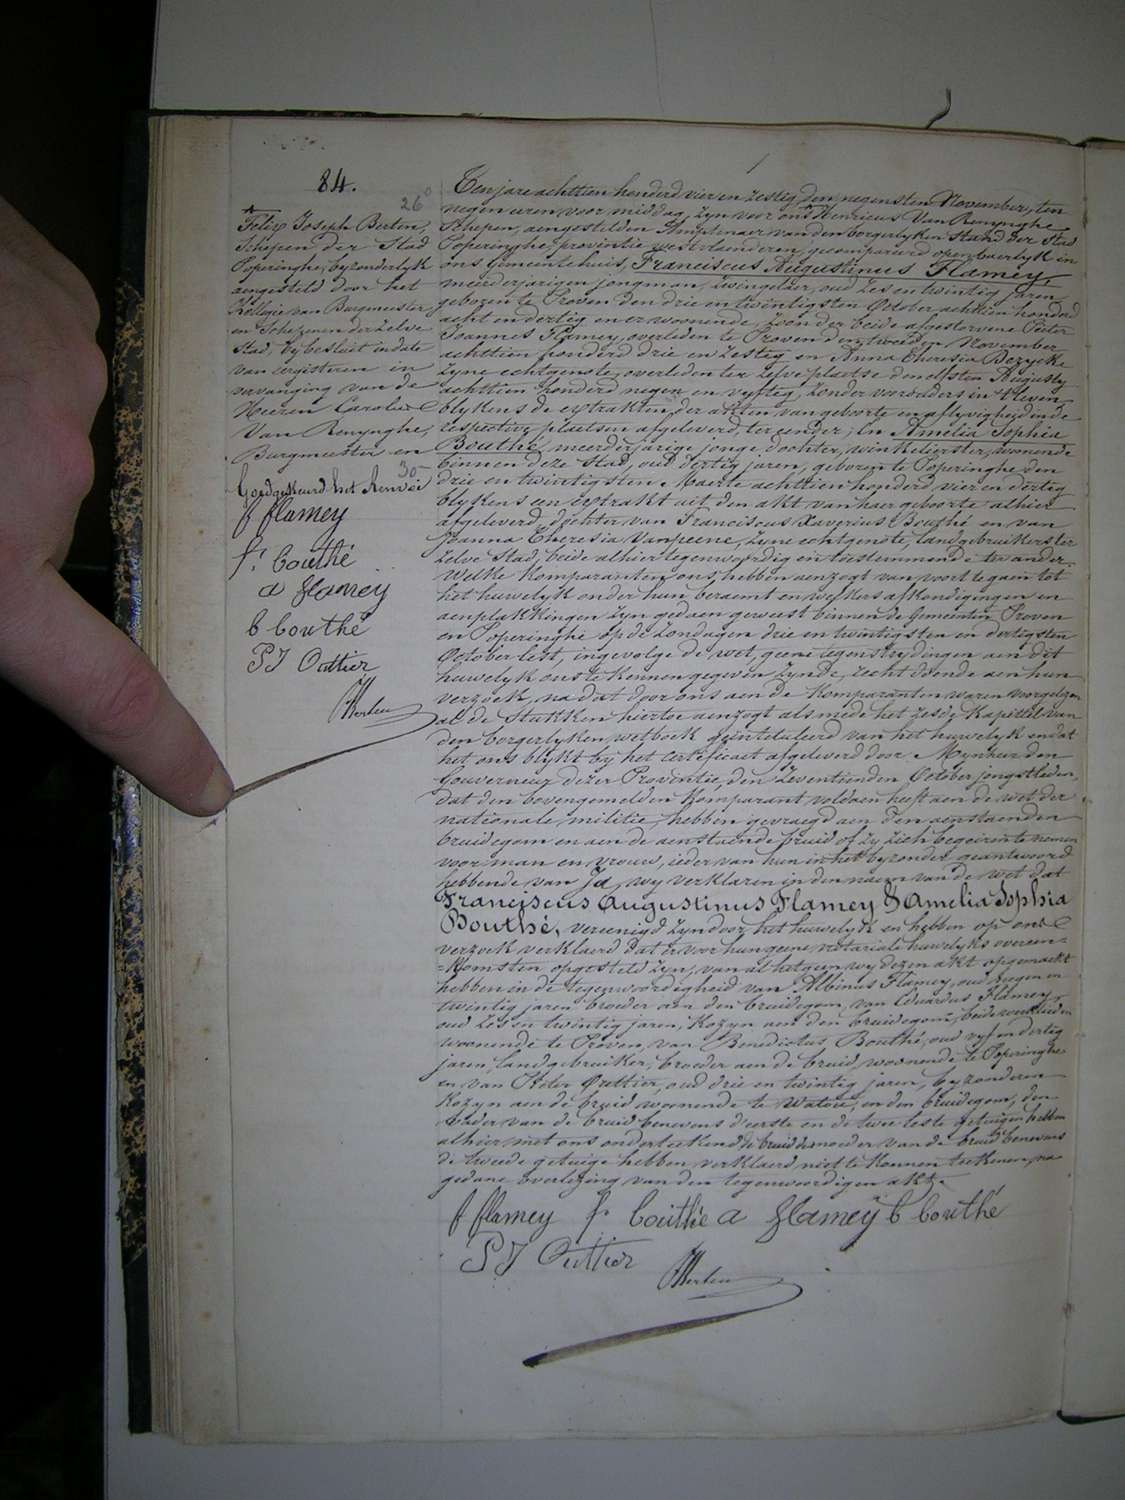 84.
26
Felix Joseph Berten,
Schepen der Stad
Poperinghe, byzonderlyk
aengesteld door het
Kollegie van Burgmeester
en Schepenen derzelve
stad, by besluit in date
van eergisteren in
vervanging van de
Heeren Carolus
Van Renynghe,
Burgmeester en
30
Goedgekeurd het Renvoi
f flamey
fr. bouthé
a flamey
b bouthé
P J Outtier
FBerten
Ten jare achttien honderd vier en zestig, den negensten November, ten
negen uren voor middag, zyn voor ons Henricus Van Renynghe
Schepen, aengestelden Amptenaer van den borgerlyken stand der Stad
Poperinghe, provintie westvlanderen, gecompareerd openbaerlyk in
ons Gemeentehuis, Franciscus Augustinus Flamey,
meerderjarigen jongman, zwingelaer, oud zes en twintig jaren
geboren te Proven den drie en twintigsten October achttien honderd
acht en dertig en er woonende, zoon der beide afgestorvene Pieter
Joannes Flamey, overleden te Proven den tweeden November
achttien honderd drie en zestig en Anna Theresia Deryck
zyne echtgenote, overleden ter zelve plaetse den elfsten Augusty
achttien honderd negen en vyftig, zonder voorouders in 't leven
blykens de extrakten der akten van geboorte en aflyvigheid in de
respective plaetsen afgeleverd, ter eender; En Amelia Sophia
Bouthé, meerderjarige jonge dochter, winkelierster, wonende
binnen deze stad, oud dertig jaren, geboren te Poperinghe den
drie en twintigsten Maerte achttien honderd vier en dertig
blykens een extrakt uit den akt van haer geboorte alhier
afgeleverd, dochter van Franciscus Xaverius Bouthé en van
Joanna Theresia Vanpeene, zyne echtgenote, landgebruikers ter
zelve stad, beide alhier tegenwoordig en toestemmende ter ander.
Welke komparanten ons hebben aenzogt van voort te gaen tot
het huwelyk onder hun beraemt en welkers afkondigingen en
aenplakkingen zyn gedaen geweest binnen de Gemeenten Proven
en Poperinghe op de zondagen drie en twintigsten en dertigsten
October lest, ingevolge de wet, geene tegenstrydingen aen dit
huwelyk ons te kennen gegeven zynde, recht doende aen hun
verzoek, na dat door ons aen de komparanten waren voorgelezen
al de stukken hiertoe aenzogt als mede het zesde kapittel van
den borgerlyken wetboek geïntituleerd van het huwelyk en dat
het ons blykt by het certificaet afgeleverd door Mynheer den
Gouverneur dezer Provintie, den zeventienden October jongstleden,
dat den bovengemelden komparant voldaen heeft aen de wet der
nationale militie, hebben gevraegd aen den aenstaenden
bruidegom en aen de aenstaende bruid of zy zich begeiren te nemen
voor man en vrouw, ieder van hun in het byzonder geantwoord
hebbende van Ja, wy verklaren in den naem van de wet dat
Franciscus Augustinus Flamey & Amelia Sophia
Bouthé, vereenigd zyn door het huwelyk en hebben op ons
verzoek verklaerd dat er voor hun geene notariale huwelyks overeen=
=komsten opgesteld zyn, van al hetgeen wy dezen akt opgemaekt
hebben in de tegenwoordigheid van Albinus Flamey, oud negen en
twintig jaren, broeder aen den bruidegom, van Eduardus Flamey
oud zes en twintig jaren, kozyn aen den bruidegom, beide werklieden
woonende te Proven, van Benedictus Bouthé, oud vyf en dertig
jaren, landgebruiker, broeder aen de bruid, woonende te Poperinghe
en van Pieter Outtier, oud drie en twintig jaren, byzonderen
kozyn aen de bruid woonende te Watou, en den bruidegom, den
vader van de bruid benevens d'eerste en de twee leste getuigen hebben
alhier met ons onderteekend, de bruid, de moeder van de bruid benevens
de tweede getuige hebben verklaerd niet te konnen teekenen, na
gedane overlezing van den tegenwoordigen akt.
f flamey fr. bouthé a flamey b bouthé
P J Outtier FBerten